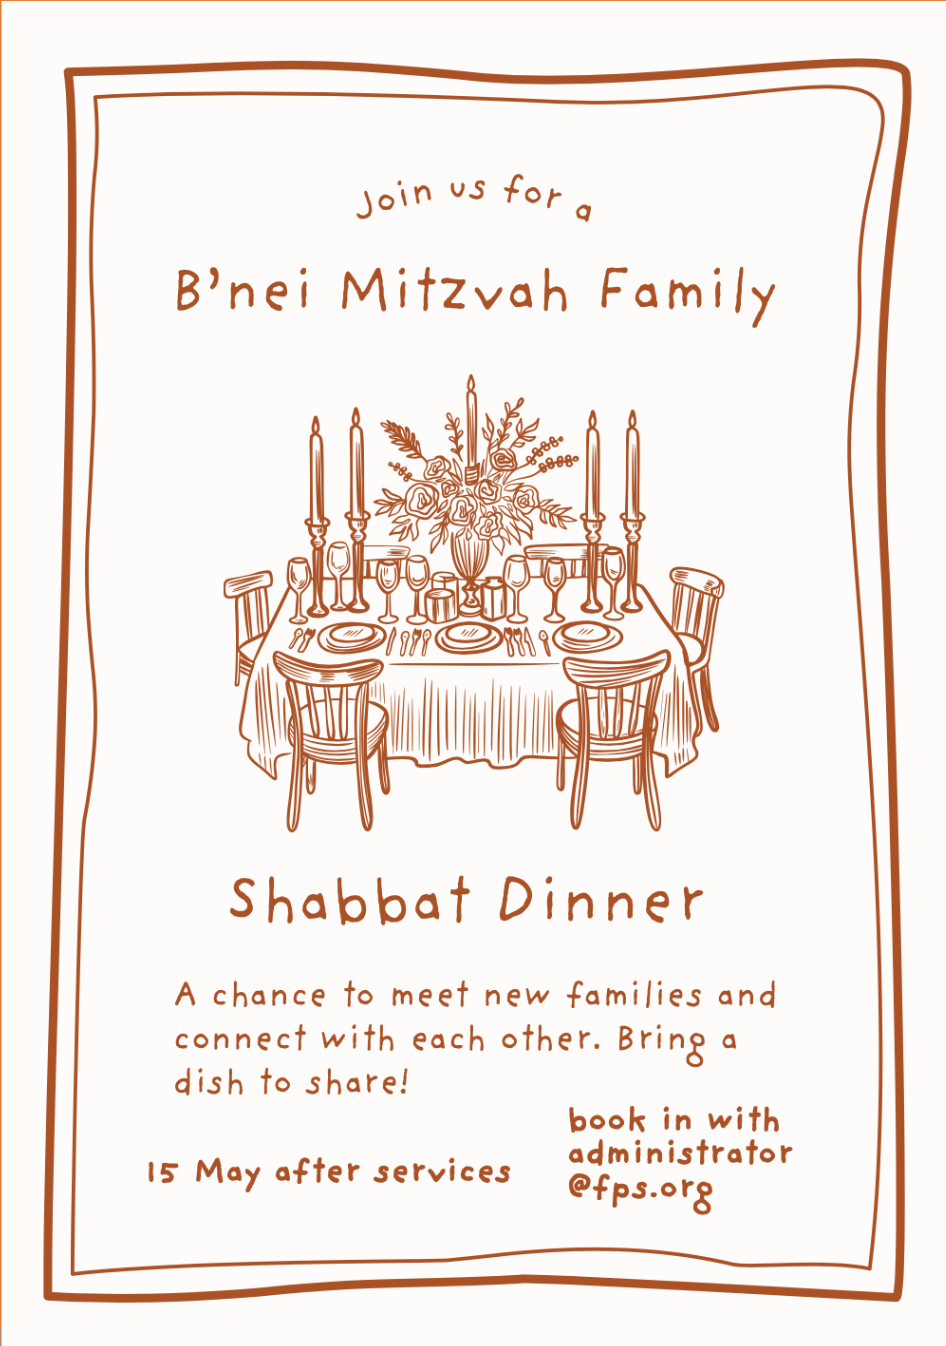 Join us for a
B'nei Mitzvah Family
Shabbat Dinner
A chance to meet new families and
connect with each other. Bring a
dish to share!
15 May after services
book in with
administrator
@fps.org